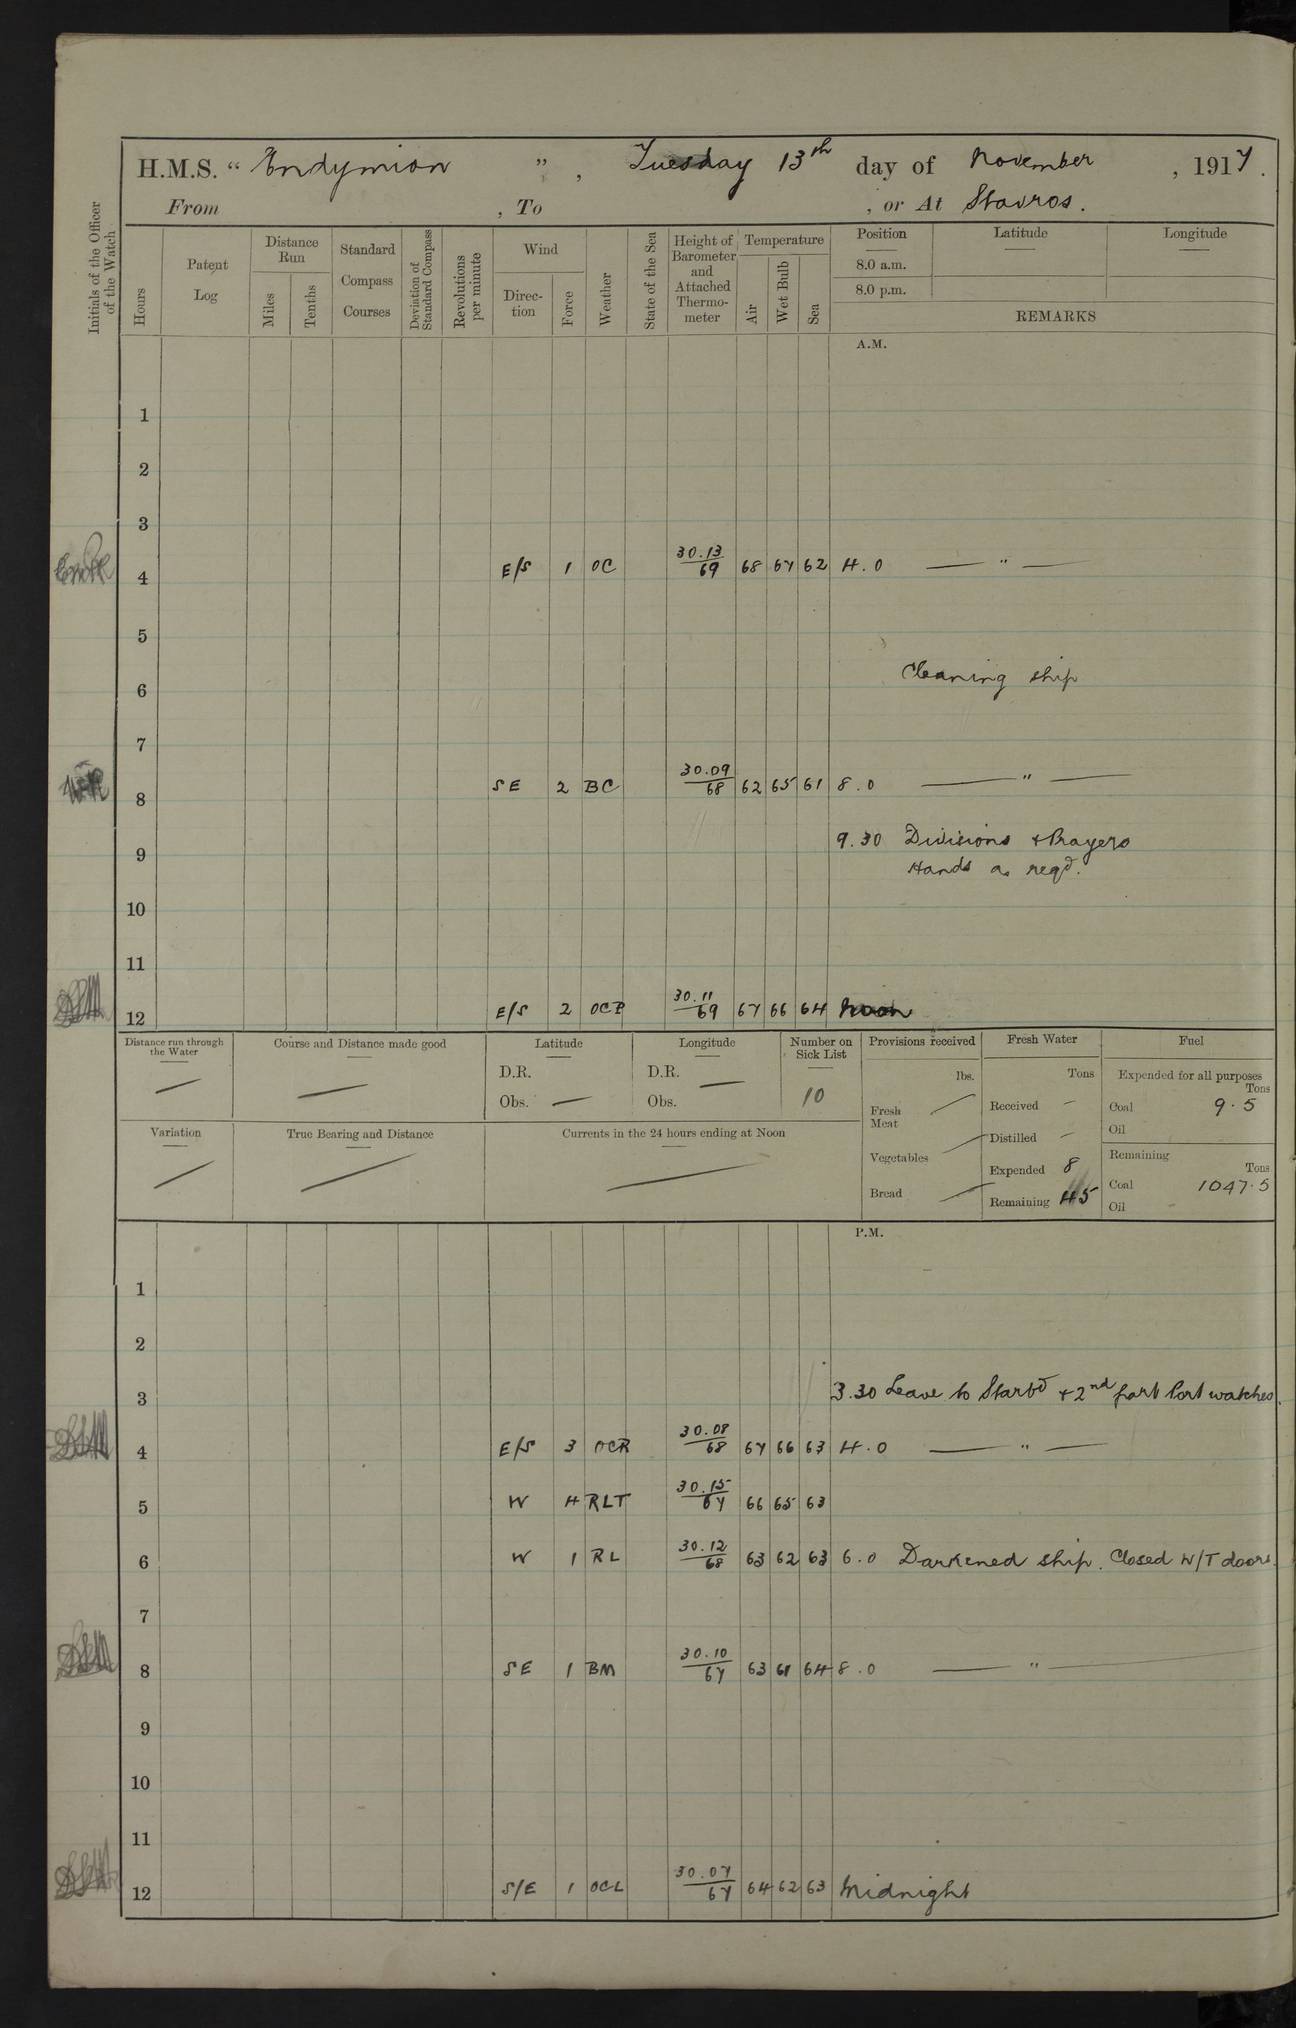 H.M.S. "Endymion", Tuesday 13th day of November, 1917.
From , To , or At Stavros.
Initials of the Officer of the Watch
Hours
Patent Log
Distance Run
Miles
Tenths
Standard Compass Courses
Deviation of Standard Compass
Revolutions per minute
Wind
Direction
Force
Weather
State of the Sea
Height of Barometer and Attached Thermometer
Temperature
Air
Wet Bulb
Sea
Position
8.0 a.m.
8.0 p.m.
Latitude
Longitude
REMARKS
A.M.
1
2
3
4 E/S 1 OC 30.13/69 68 67 62 4.0 — " —
5
6 Cleaning ship
7
8 SE 2 BC 30.09/68 62 65 61 8.0 — " —
9 9.30 Divisions + Prayers
Hands as reqd.
10
11
12 E/S 2 OCP 30.11/69 67 66 64 Noon
Distance run through the Water —
Course and Distance made good —
Latitude
D.R.
Obs. —
Longitude
D.R. —
Obs.
Number on Sick List
10
Provisions received
lbs.
Fresh Meat —
Vegetables —
Bread —
Fresh Water
Tons
Received —
Distilled —
Expended 8
Remaining 45
Fuel
Expended for all purposes
Tons
Coal 9.5
Oil
Remaining
Tons
Coal 1047.5
Oil
Variation —
True Bearing and Distance —
Currents in the 24 hours ending at Noon —
P.M.
1
2
3 3.30 Leave to Starbd + 2nd part Port watches.
4 E/S 3 OCR 30.08/68 67 66 63 4.0 — " —
5 W 4 RLT 30.15/67 66 65 63
6 W 1 RL 30.12/68 63 62 63 6.0 Darkened ship. Closed W/T doors.
7
8 SE 1 BM 30.10/67 63 61 64 8.0 — " —
9
10
11
12 S/E 1 OCL 30.07/67 64 62 63 Midnight